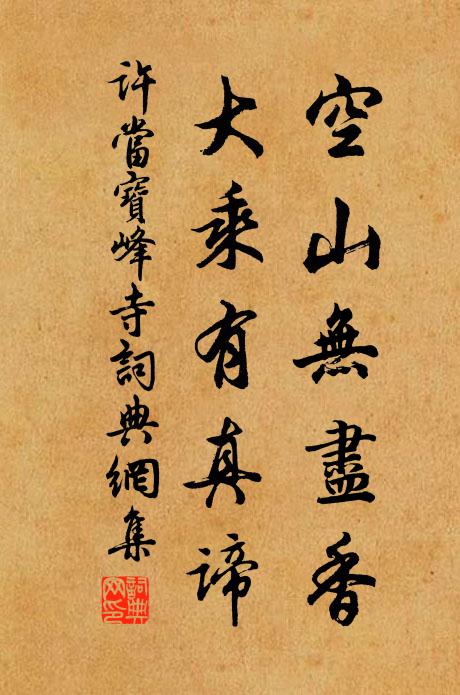 空山無盡香
大乘有真諦
許當寶峰寺詞典網集
詞典网印